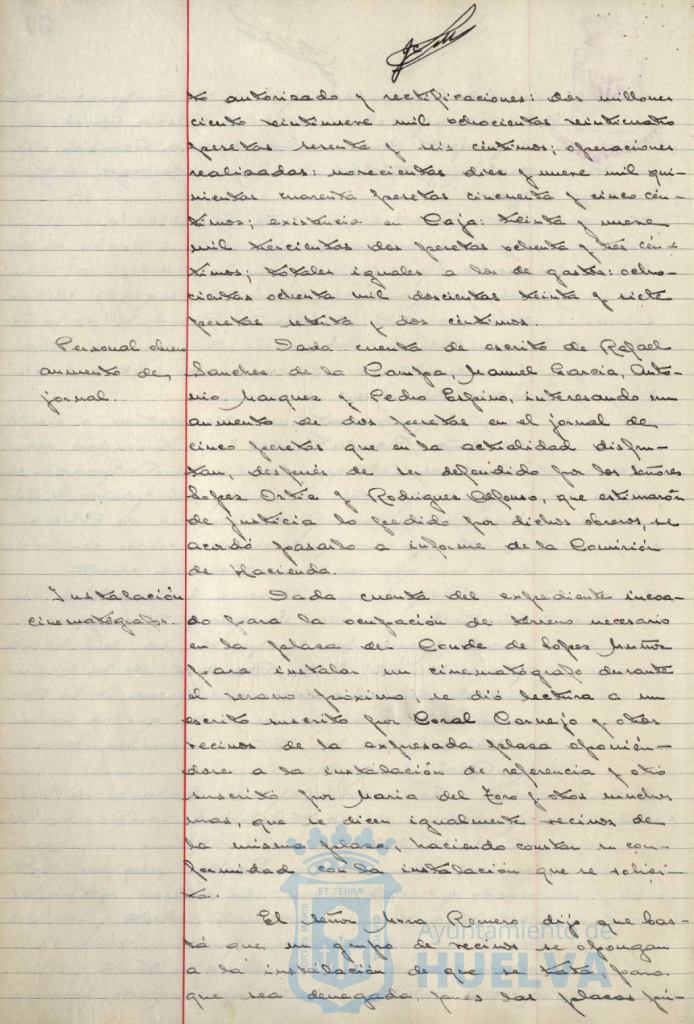 to autorizado y rectificaciones: dos millones
ciento veintinueve mil ochocientas veinticuatro
pesetas sesenta y seis céntimos; operaciones
realizadas: novecientas diez y nueve mil qui-
nientas cuarenta pesetas cincuenta y cinco cén-
timos; existencia en Caja: treinta y nueve
mil trescientas dos pesetas ochenta y tres cén-
timos; totales iguales a los de gastos: ocho-
cientas ochenta mil doscientas treinta y siete
pesetas setenta y dos céntimos.
Personal obrero
aumento de
jornal.
Dada cuenta de escrito de Rafael
Sanchez de la Campa, Manuel Garcia, Anto-
nio Marquez y Pedro Espino, interesando un
aumento de dos pesetas en el jornal de
cinco pesetas que en la actualidad disfru-
tan, después de ser defendido por los señores
Lopez Ortiz y Rodriguez Alfonso, que estimarón
de justicia lo pedido por dichos obreros, se
acordó pasarlo a informe de la Comisión
de Hacienda.
Instalación
cinematógrafo.
Dada cuenta del expediente incoa-
do para la ocupación de terreno necesario
en la plaza del Conde de Lopez Muñoz
para instalar un cinematógrafo durante
el verano próximo, se dió lectura a un
escrito suscrito por Coral Cornejo y otros
vecinos de la expresada plaza oponién-
dose a la instalación de referencia y otro
suscrito por Maria del Toro y otros muchos
mas, que se dicen igualmente vecinos de
la misma plaza, haciendo constar su con-
formidad con la instalación que se solici-
ta.
El señor Mora Romero dijo que bas-
ta que un grupo de vecinos se opongan
a la instalación de que se trata, para
que sea denegada, pues las plazas pú-
ET TERRA
PORTUS MARIS
CUSTODIO
Ayuntamiento de
HUELVA